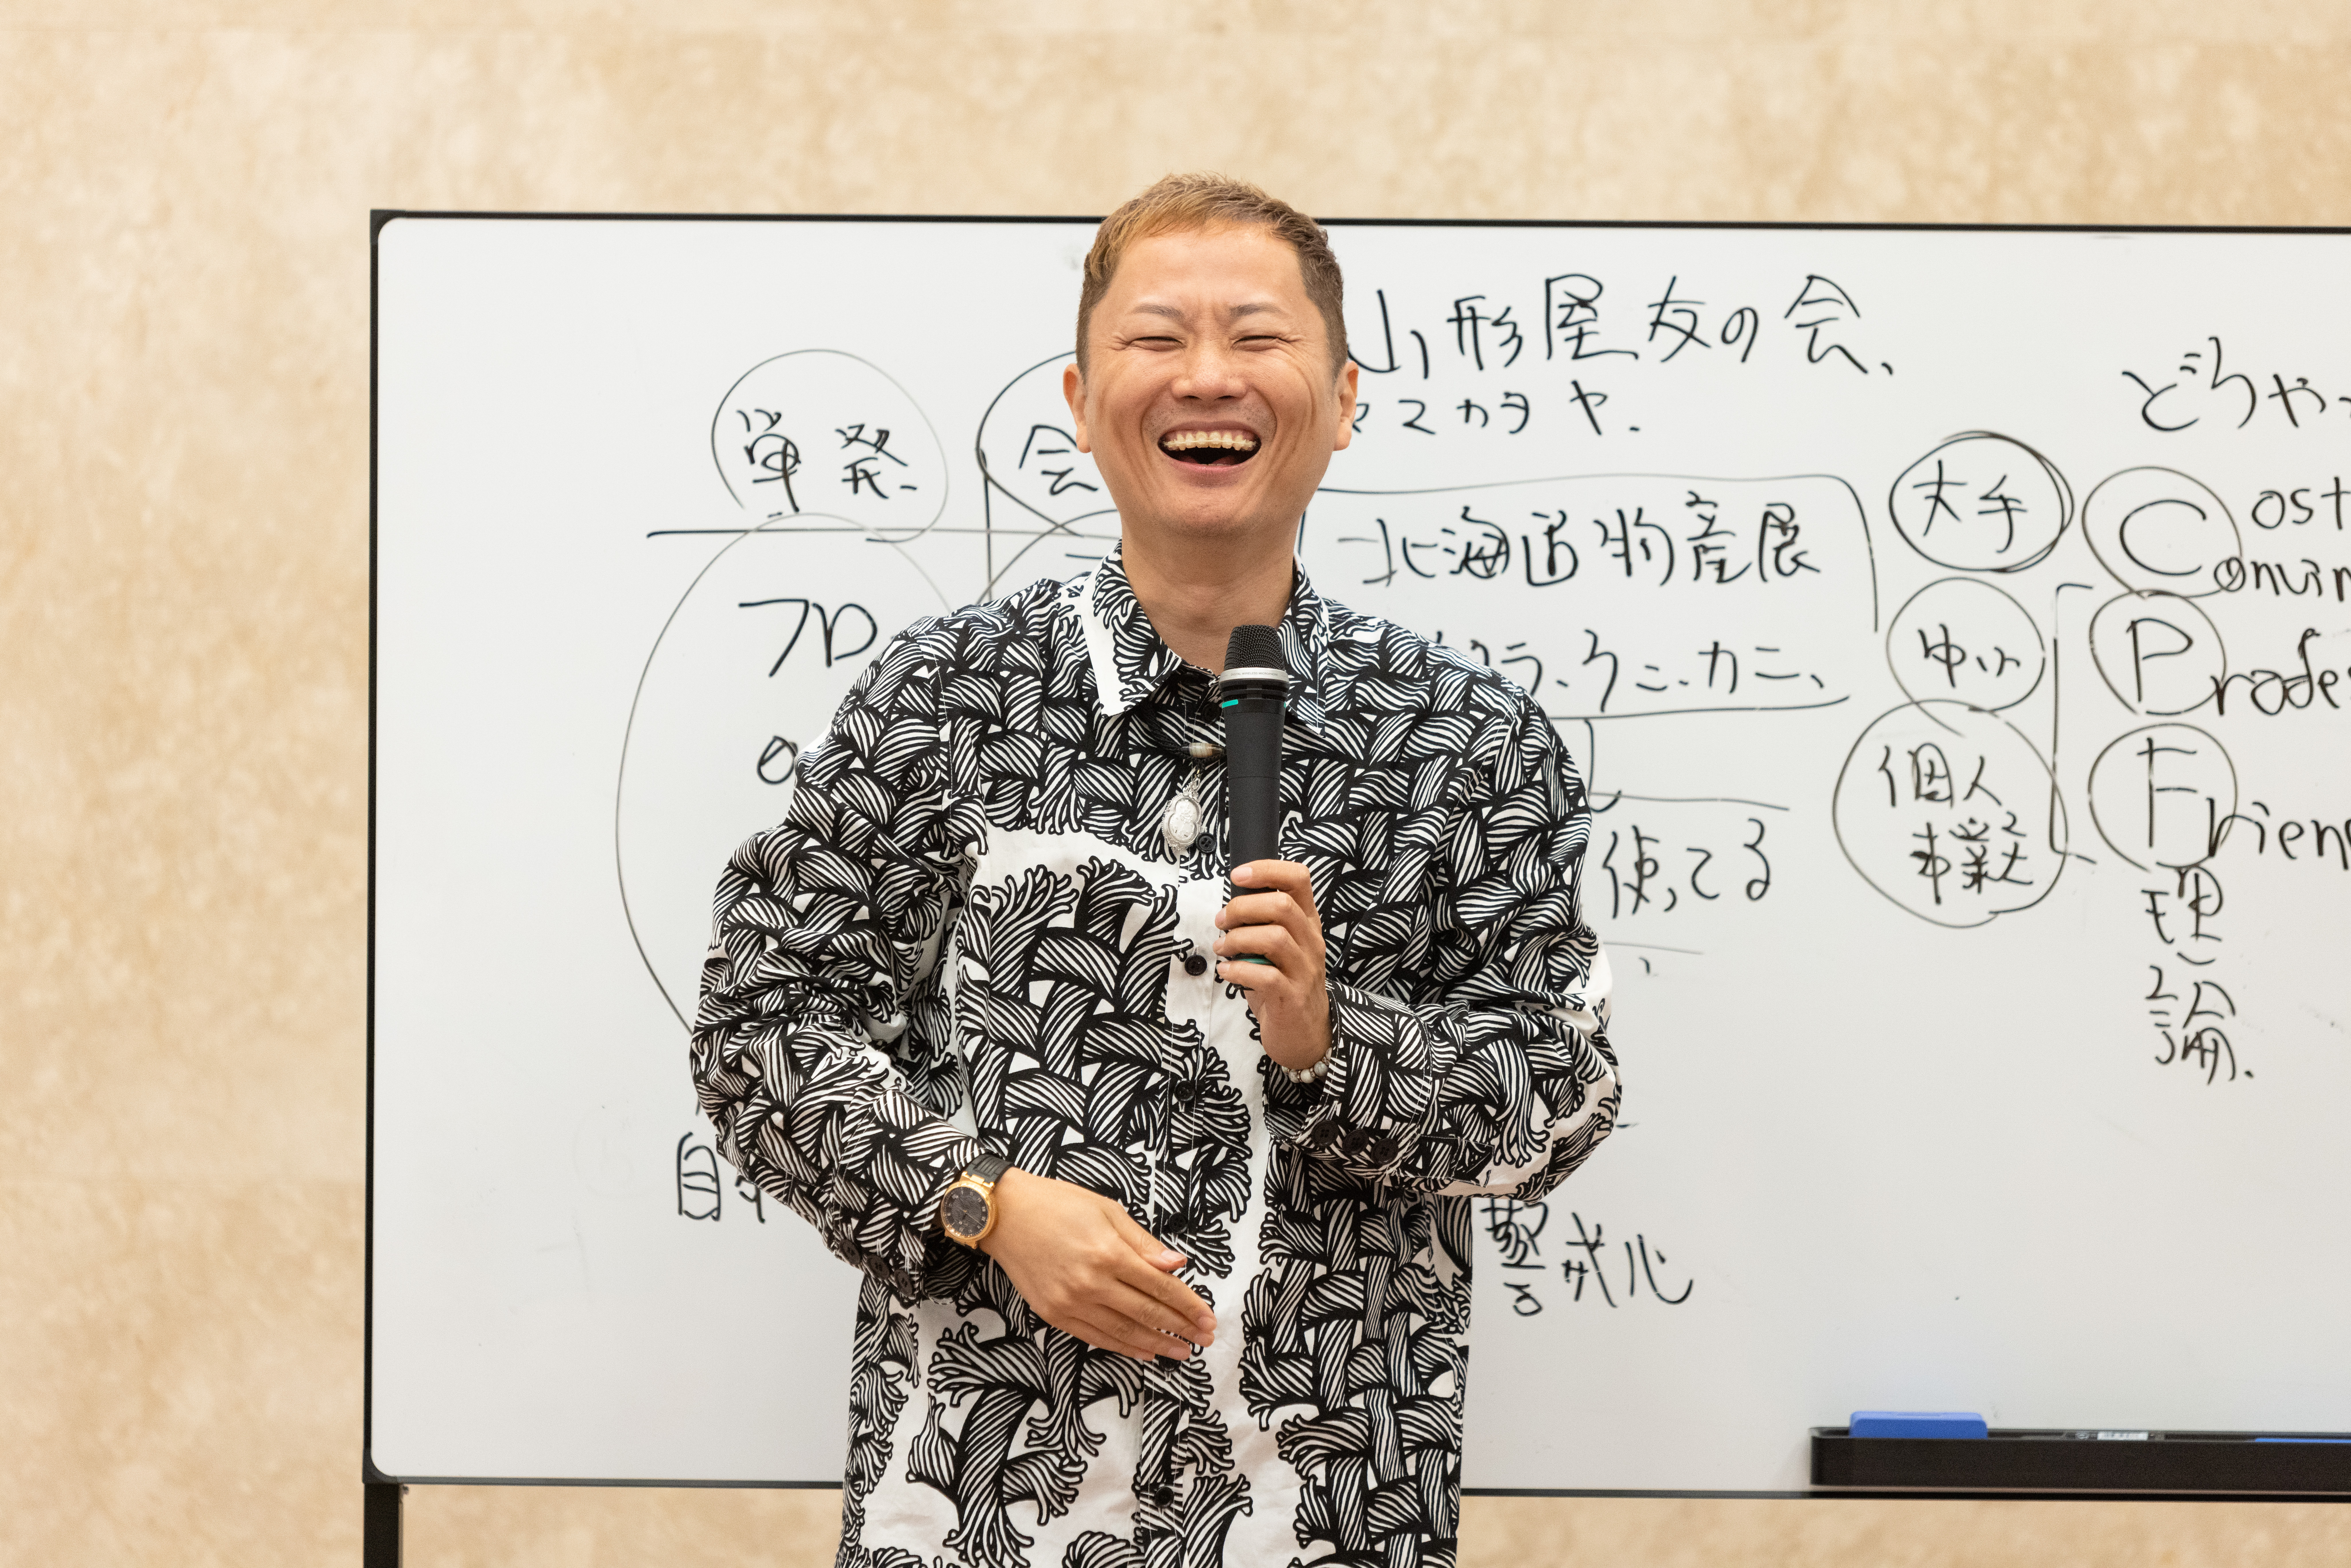 山形屋友の会、
ヤマカタヤ.
単発.
会
北海道物産展
フロ
ラ、ウニ、カニ、
使ってる
自
警戒心
どうや
大手
中小
個人
事業
Cost
Convin
Profe
Frien
理
論.